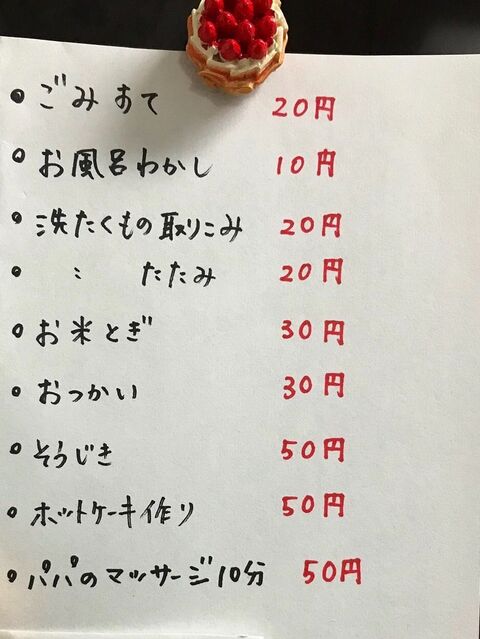 • ごみすて 20円
• お風呂わかし 10円
• 洗たくもの取りこみ 20円
• 〃 たたみ 20円
• お米とぎ 30円
• おつかい 30円
• そうじき 50円
• ホットケーキ作り 50円
• パパのマッサージ10分 50円